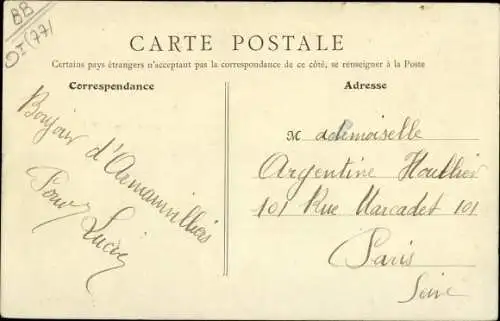 BB
CARTE POSTALE
Certains pays étrangers n'acceptant pas la correspondance de ce côté, se renseigner à la Poste
Correspondance
Adresse
Bonjour d'Armainvilliers
Lucie
Mademoiselle
Argentine Houllier
101 Rue Marcadet 101
Paris
Seine